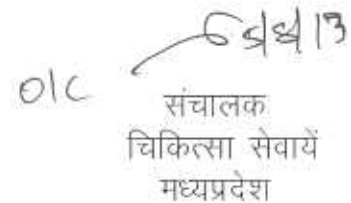 O/C
संचालक
चिकित्सा सेवायें
मध्यप्रदेश